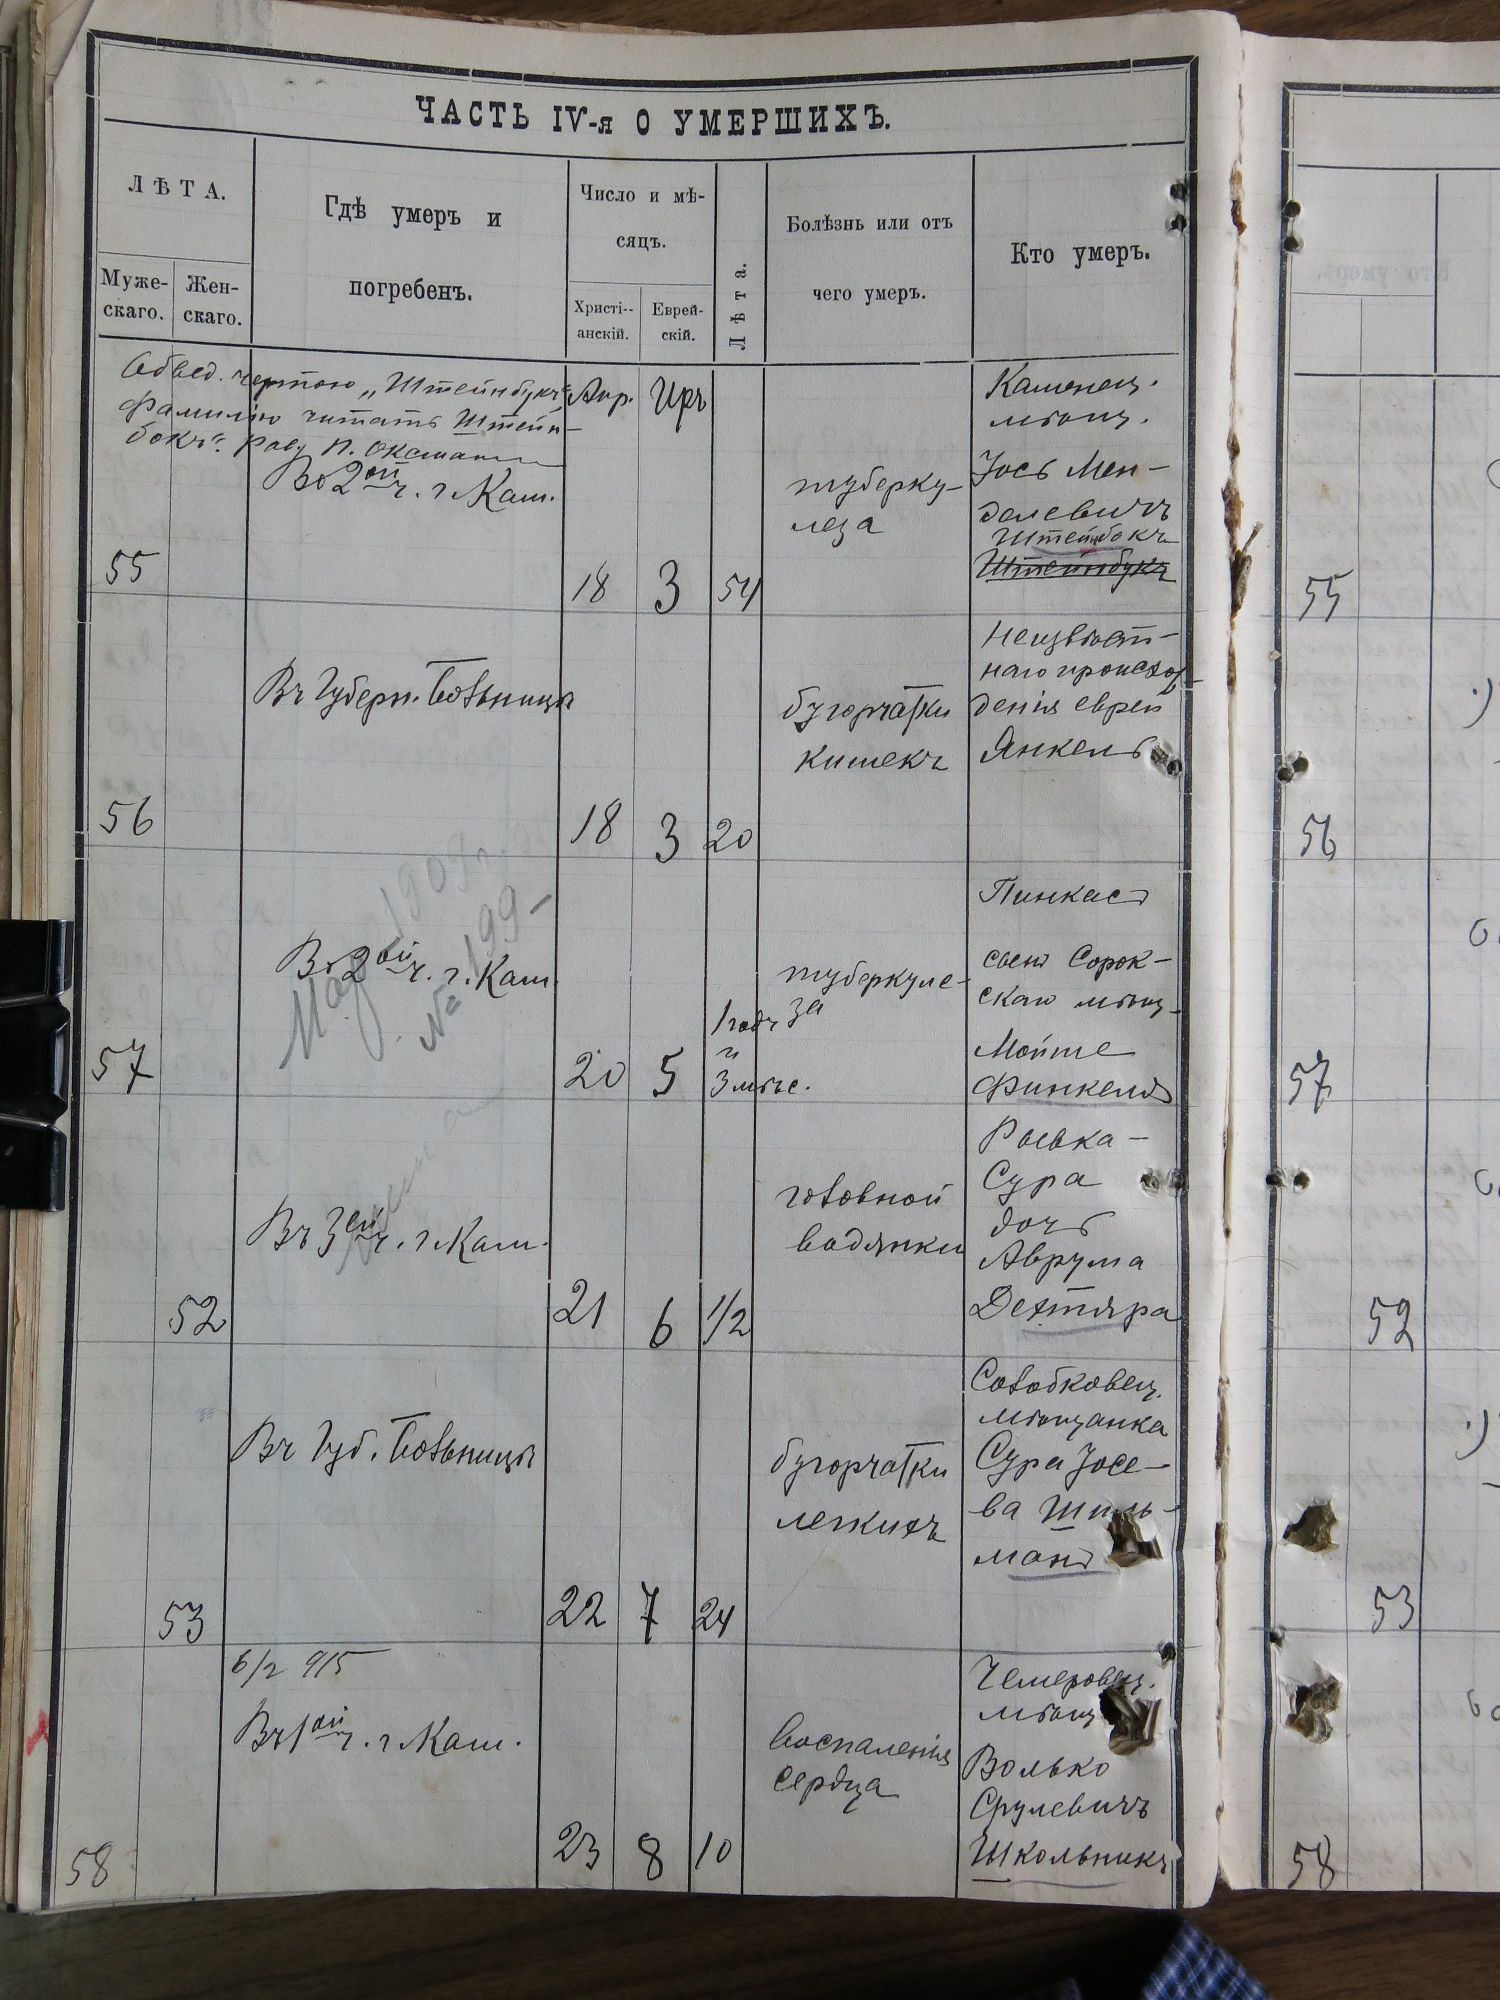 ЧАСТЬ IV-я О УМЕРШИХЪ.
ЛѢТА.
Муже-
скаго.
Жен-
скаго.
Гдѣ умеръ и
погребенъ.
Число и мѣ-
сяцъ.
Христі-
анскій.
Еврей-
скій.
Лѣта.
Болѣзнь или отъ
чего умеръ.
Кто умеръ.
Обвед. чертою „Штейнбукъ“
фамилію читать Штейн-
бокъ“.
Апр.
Иръ
55
Во 2ой ч. г. Кам.
18
3
54
туберку-
леза
Каменец.
мѣщ.
Іось Мен-
делевичъ
Штейнбокъ
Штейнбукъ
56
Въ Губерн. Больницѣ
18
3
20
бугорчатки
кишекъ
Неизвѣст-
наго происхож-
денія еврей
Янкель
1909 г.
№ 199-
57
Во 2ой ч. г. Кам.
20
5
1 годъ
и
3 мѣс.
туберкуле-
за
Пинкас
сынъ Сорок-
скаго мѣщ.
Мойше
Финкель
52
Въ 3ей ч. г. Кам.
21
6
1/2
головной
водянки
Рывка-
Сура
дочь
Аврума
Дехтяра
53
Въ Губ. Больницѣ
22
7
24
бугорчатки
легкихъ
Солобковец.
мѣщанка
Сура Іосе-
ва Шиль-
ман
6/2 915
58
Въ 1ой ч. г. Кам.
23
8
10
воспаленія
сердца
Чемеровец.
мѣщ
Волько
Срулевичъ
Школьникъ
55
56
57
52
53
58